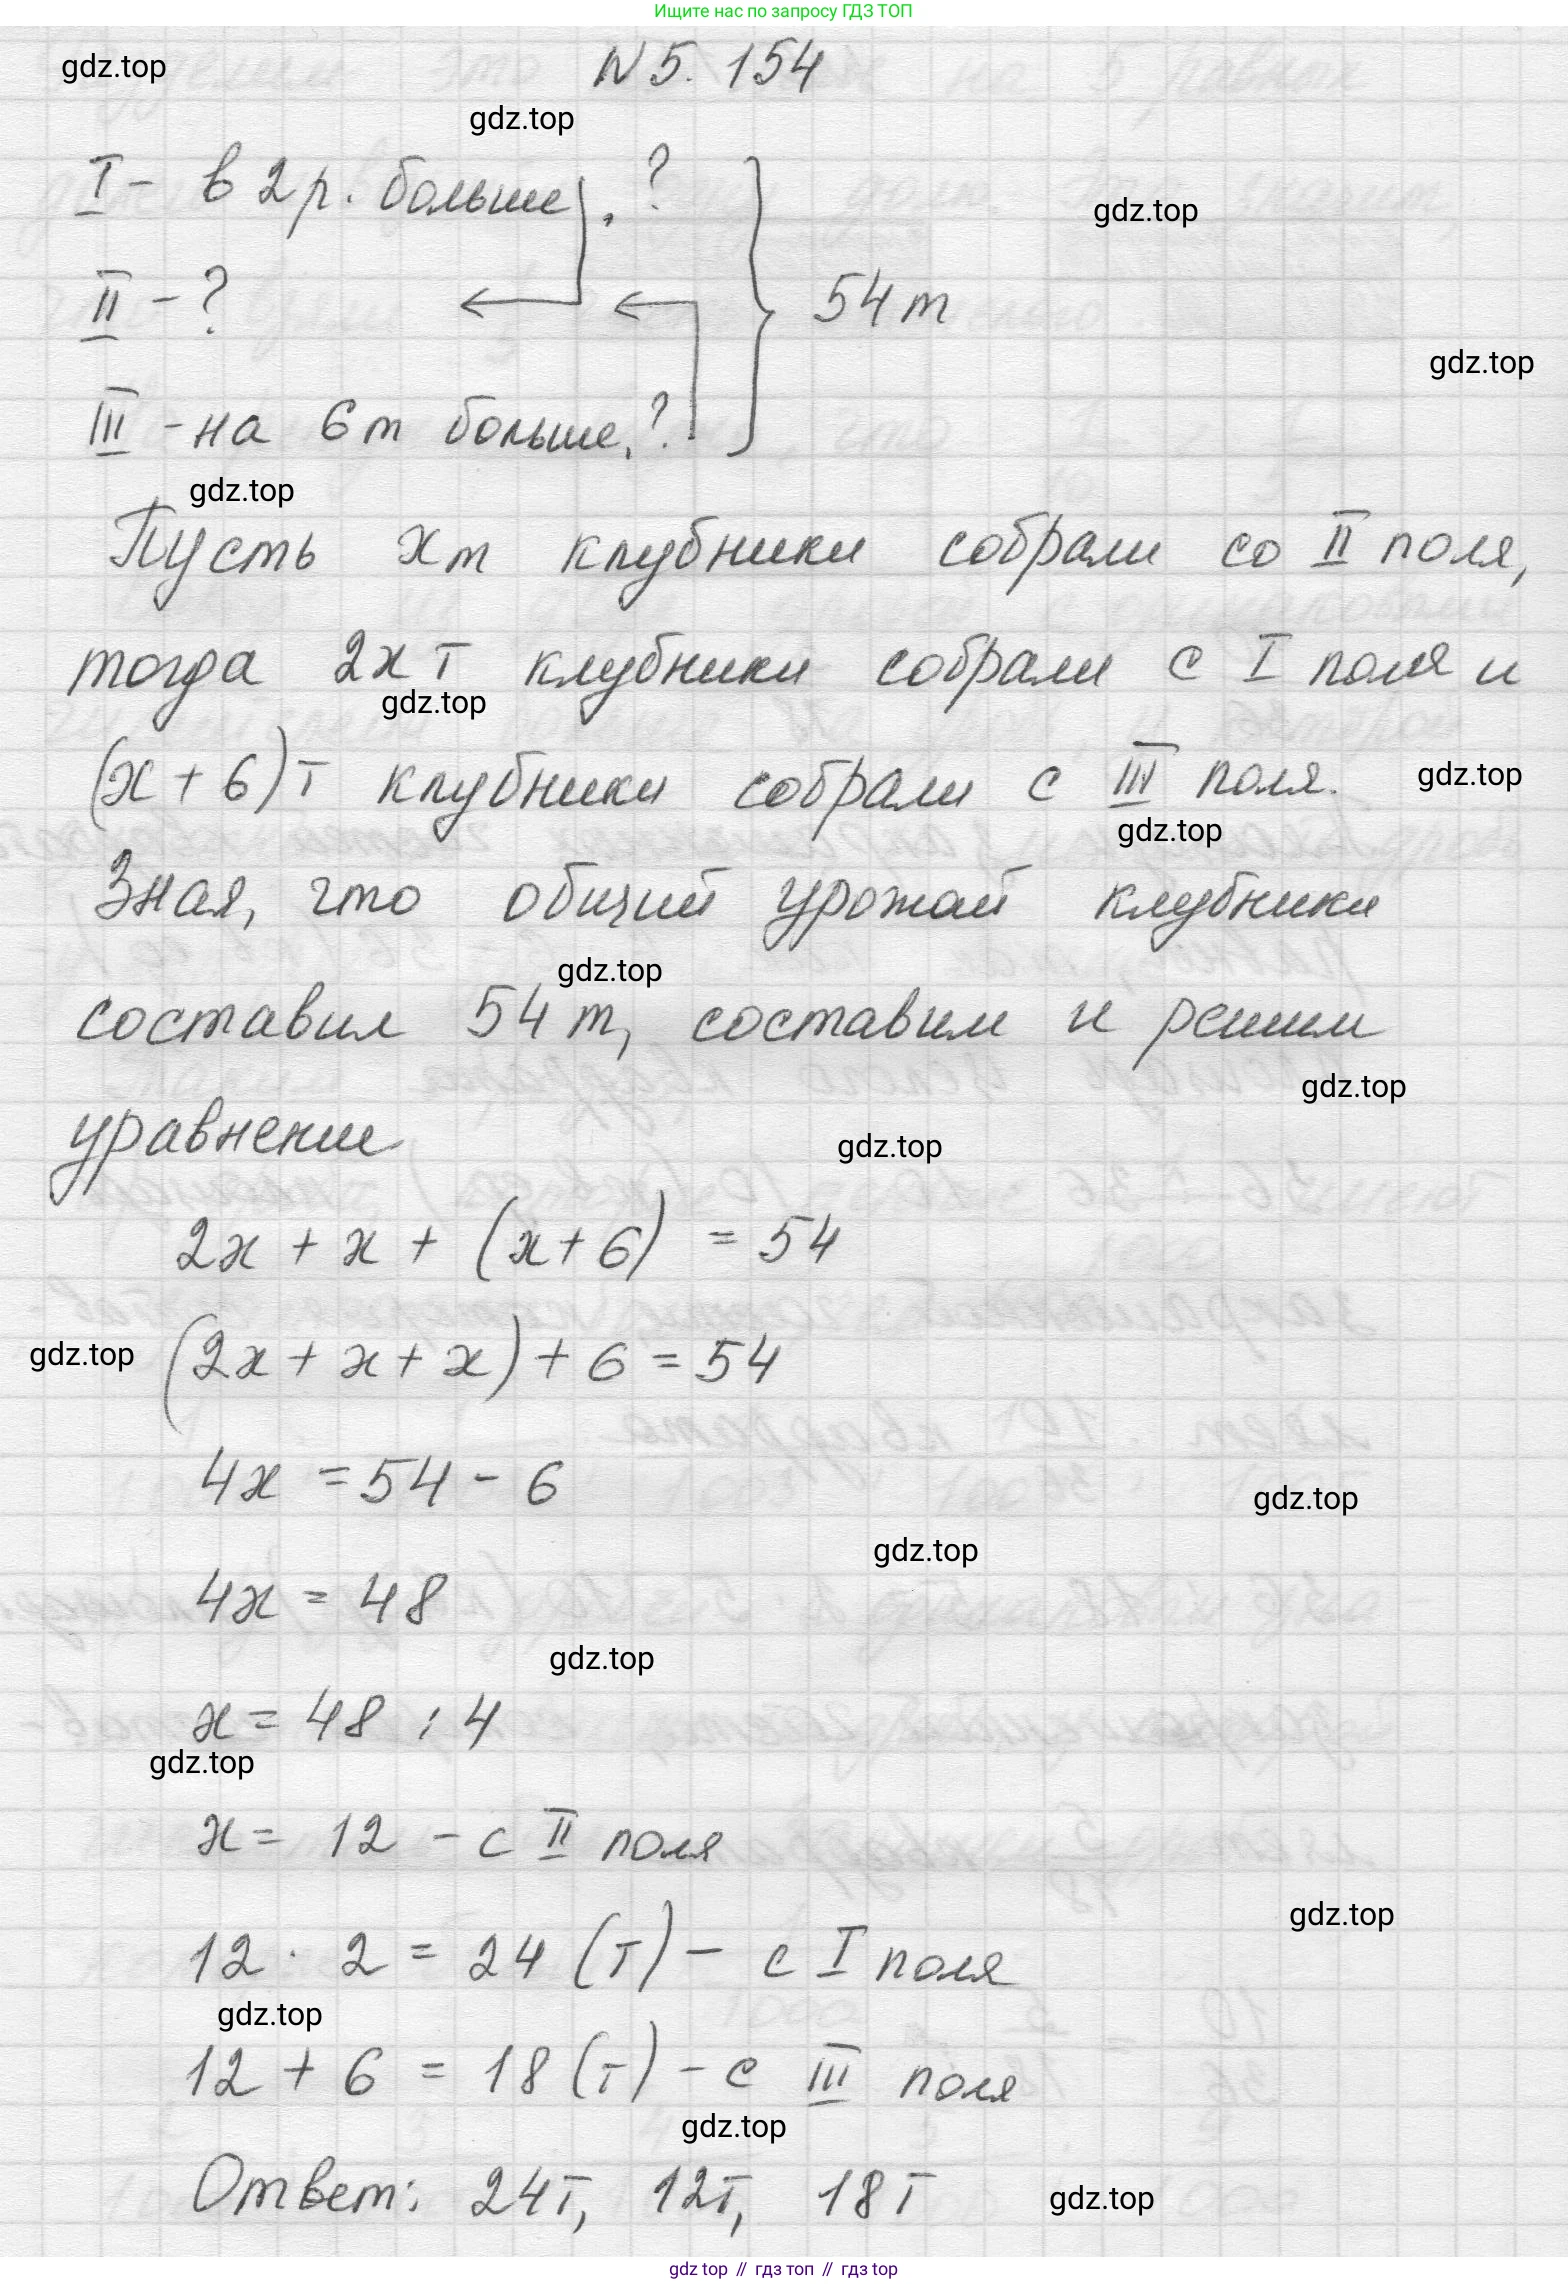 Ищите нас по запросу ГДЗ ТОП
gdz.top
N 5. 154
gdz.top
I - в 2 р. больше, ?
gdz.top
II - ?
54 т
gdz.top
III - на 6 т больше, ?
gdz.top
Пусть x т клубники собрали со II поля,
тогда 2x т клубники собрали с I поля и
gdz.top
(x + 6) т клубники собрали с III поля.
gdz.top
gdz.top
Зная, что общий урожай клубники
gdz.top
составил 54 т, составим и решим
gdz.top
уравнение
gdz.top
2x + x + (x + 6) = 54
gdz.top
(2x + x + x) + 6 = 54
4x = 54 - 6
gdz.top
gdz.top
4x = 48
gdz.top
x = 48 : 4
gdz.top
x = 12 - с II поля
gdz.top
12 · 2 = 24 (т) - с I поля
gdz.top
12 + 6 = 18 (т) - с III поля
gdz.top
Ответ: 24т, 12т, 18т
gdz.top
gdz top // гдз топ // гдз top